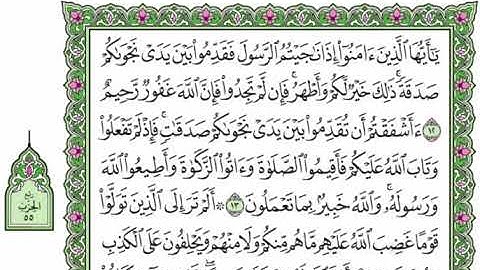 يَـٰٓأَيُّهَا ٱلَّذِينَ ءَامَنُوٓا۟ إِذَا نَـٰجَيْتُمُ ٱلرَّسُولَ فَقَدِّمُوا۟ بَيْنَ يَدَىْ نَجْوَىٰكُمْ
صَدَقَةً ۚ ذَٰلِكَ خَيْرٌ لَّكُمْ وَأَطْهَرُ ۚ فَإِن لَّمْ تَجِدُوا۟ فَإِنَّ ٱللَّهَ غَفُورٌ رَّحِيمٌ
١٢ ءَأَشْفَقْتُمْ أَن تُقَدِّمُوا۟ بَيْنَ يَدَىْ نَجْوَىٰكُمْ صَدَقَـٰتٍ ۚ فَإِذْ لَمْ تَفْعَلُوا۟
وَتَابَ ٱللَّهُ عَلَيْكُمْ فَأَقِيمُوا۟ ٱلصَّلَوٰةَ وَءَاتُوا۟ ٱلزَّكَوٰةَ وَأَطِيعُوا۟ ٱللَّهَ
وَرَسُولَهُۥ ۚ وَٱللَّهُ خَبِيرٌۢ بِمَا تَعْمَلُونَ ١٣ ۞ أَلَمْ تَرَ إِلَى ٱلَّذِينَ تَوَلَّوْا۟
قَوْمًا غَضِبَ ٱللَّهُ عَلَيْهِم مَّا هُم مِّنكُمْ وَلَا مِنْهُمْ وَيَحْلِفُونَ عَلَى ٱلْكَذِبِ
ربع
الحزب
٥٥